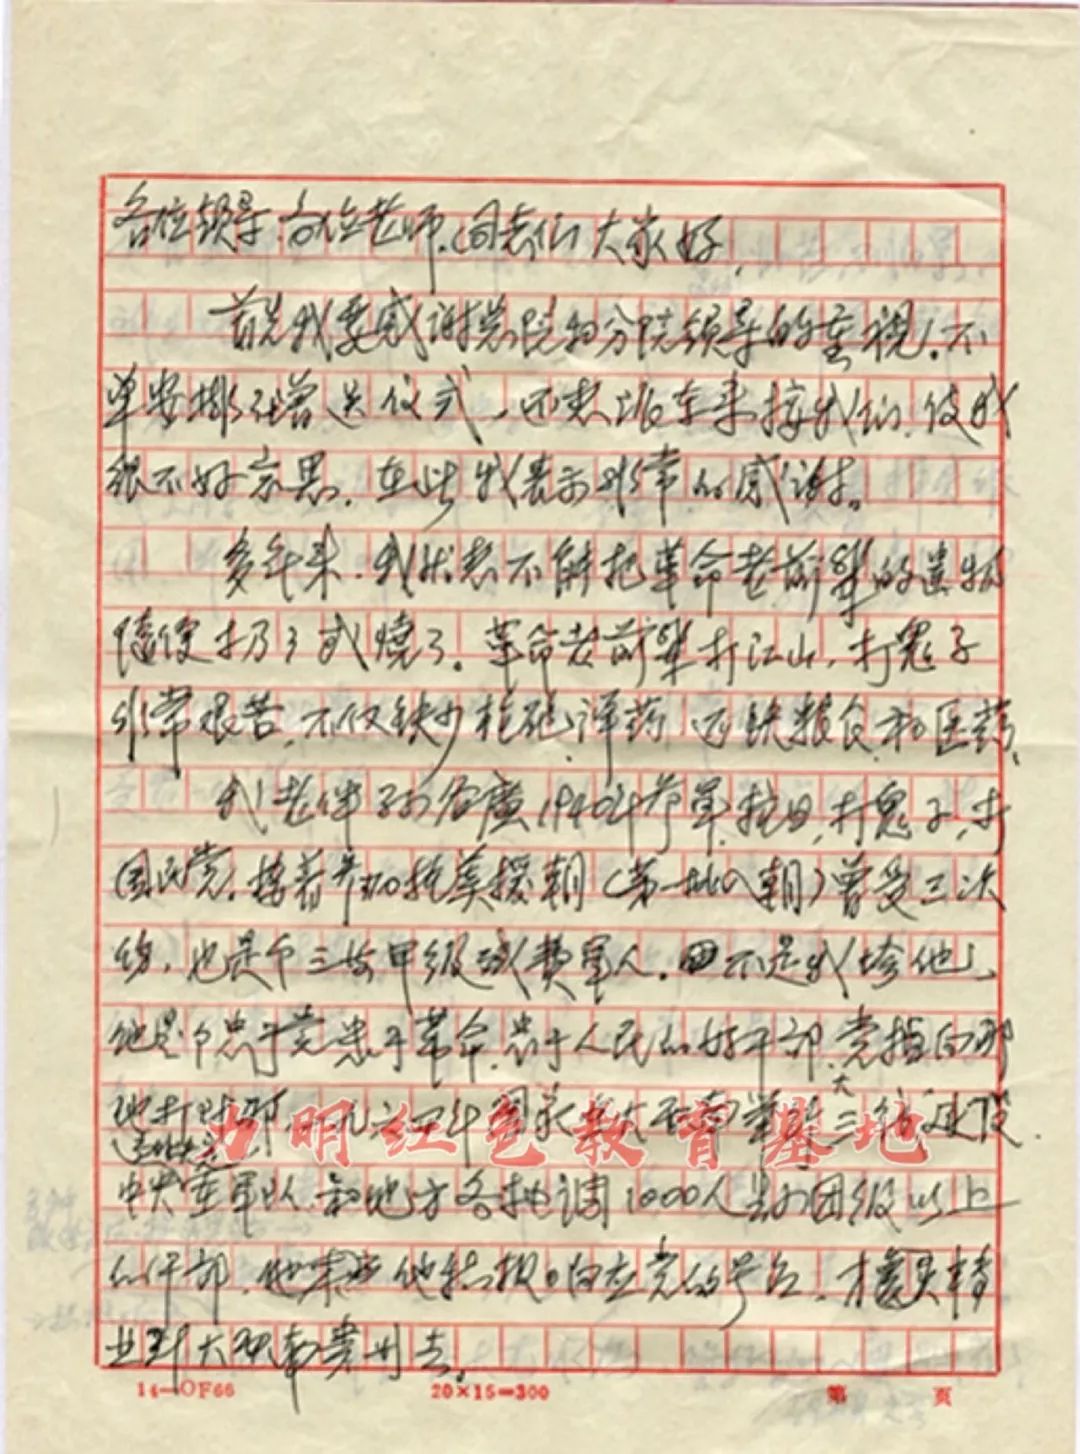 各位领导、各位老师、同志们大家好，
首先我要感谢总院和分院领导的重视。不
单安排在赠送仪式，还想派车来接我们，使我
很不好意思，在此我表示非常的感谢。
多年来，我状态不解把革命老前辈的遗物
随便扔了或烧了。革命老前辈打江山，打鬼子
非常艰苦，不仅缺少枪炮、弹药，还缺粮食和医药，
我老伴 1940年参军抗日，打鬼子，打
国民党，接着参加抗美援朝（第一批入朝）曾受三次
伤，也是个三等甲级残废军人。不是我夸他，
他是个忠于党忠于革命，忠于人民的好干部，党指向那
他打到那，一九六四年国家 大三线建设，
中央在军队和地方各抽调1000人 团级以上
的干部，他 积极响应党的号召，
去。
力明红色教育基地
14—OF66
20×15=300
第 页